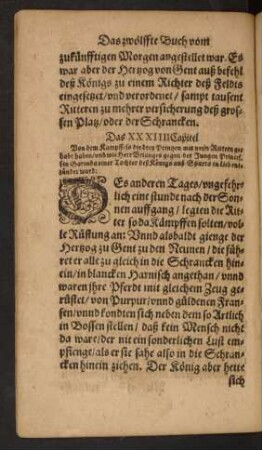 Das zwölffte Buch vom
zukünfftigen Morgen angestellet war. Es
war aber der Hertzog von Gent auß befehl
deß Königs zu einem Richter deß Feldts
eingesetzet/und verordenet / sampt tausent
Ritteren zu mehrer versicherung deß gros-
sen Platz/oder der Schrancken.
Das XXXIIII Capitel
Von dem Kampff so die drey Printzen mit
habt haben/und wie Herr gegen der Jungen Princess
in einer Tochter deß Königs von in Lieb ent-
zündet ward.
DEs anderen Tages/ungefehr-
lich eine stunde nach der Son-
nen auffgang / legten die Rit-
ter so da Kämpffen solten/vol-
le Rüstung an: Vnnd alsobaldt gienge der
Hertzog zu Gent zu den Neunen / die füh-
ret er alle zu gleich in die Schrancken hin-
ein/in blancken Harnisch angethan / vnnd
waren ihre Pferdt mit gleichem Zeug ge-
rüstet/ von Purpur/vnnd güldenen Fran-
sen/vnnd kondten sich neben dem so Artlich
in Bossen stellen/ daß kein Mensch nicht
da ware/der nit ein sonderlichen Lust em-
pfienge/als er sie sahe also in die Schran-
cken hinein ziehen. Der König aber hette
sich